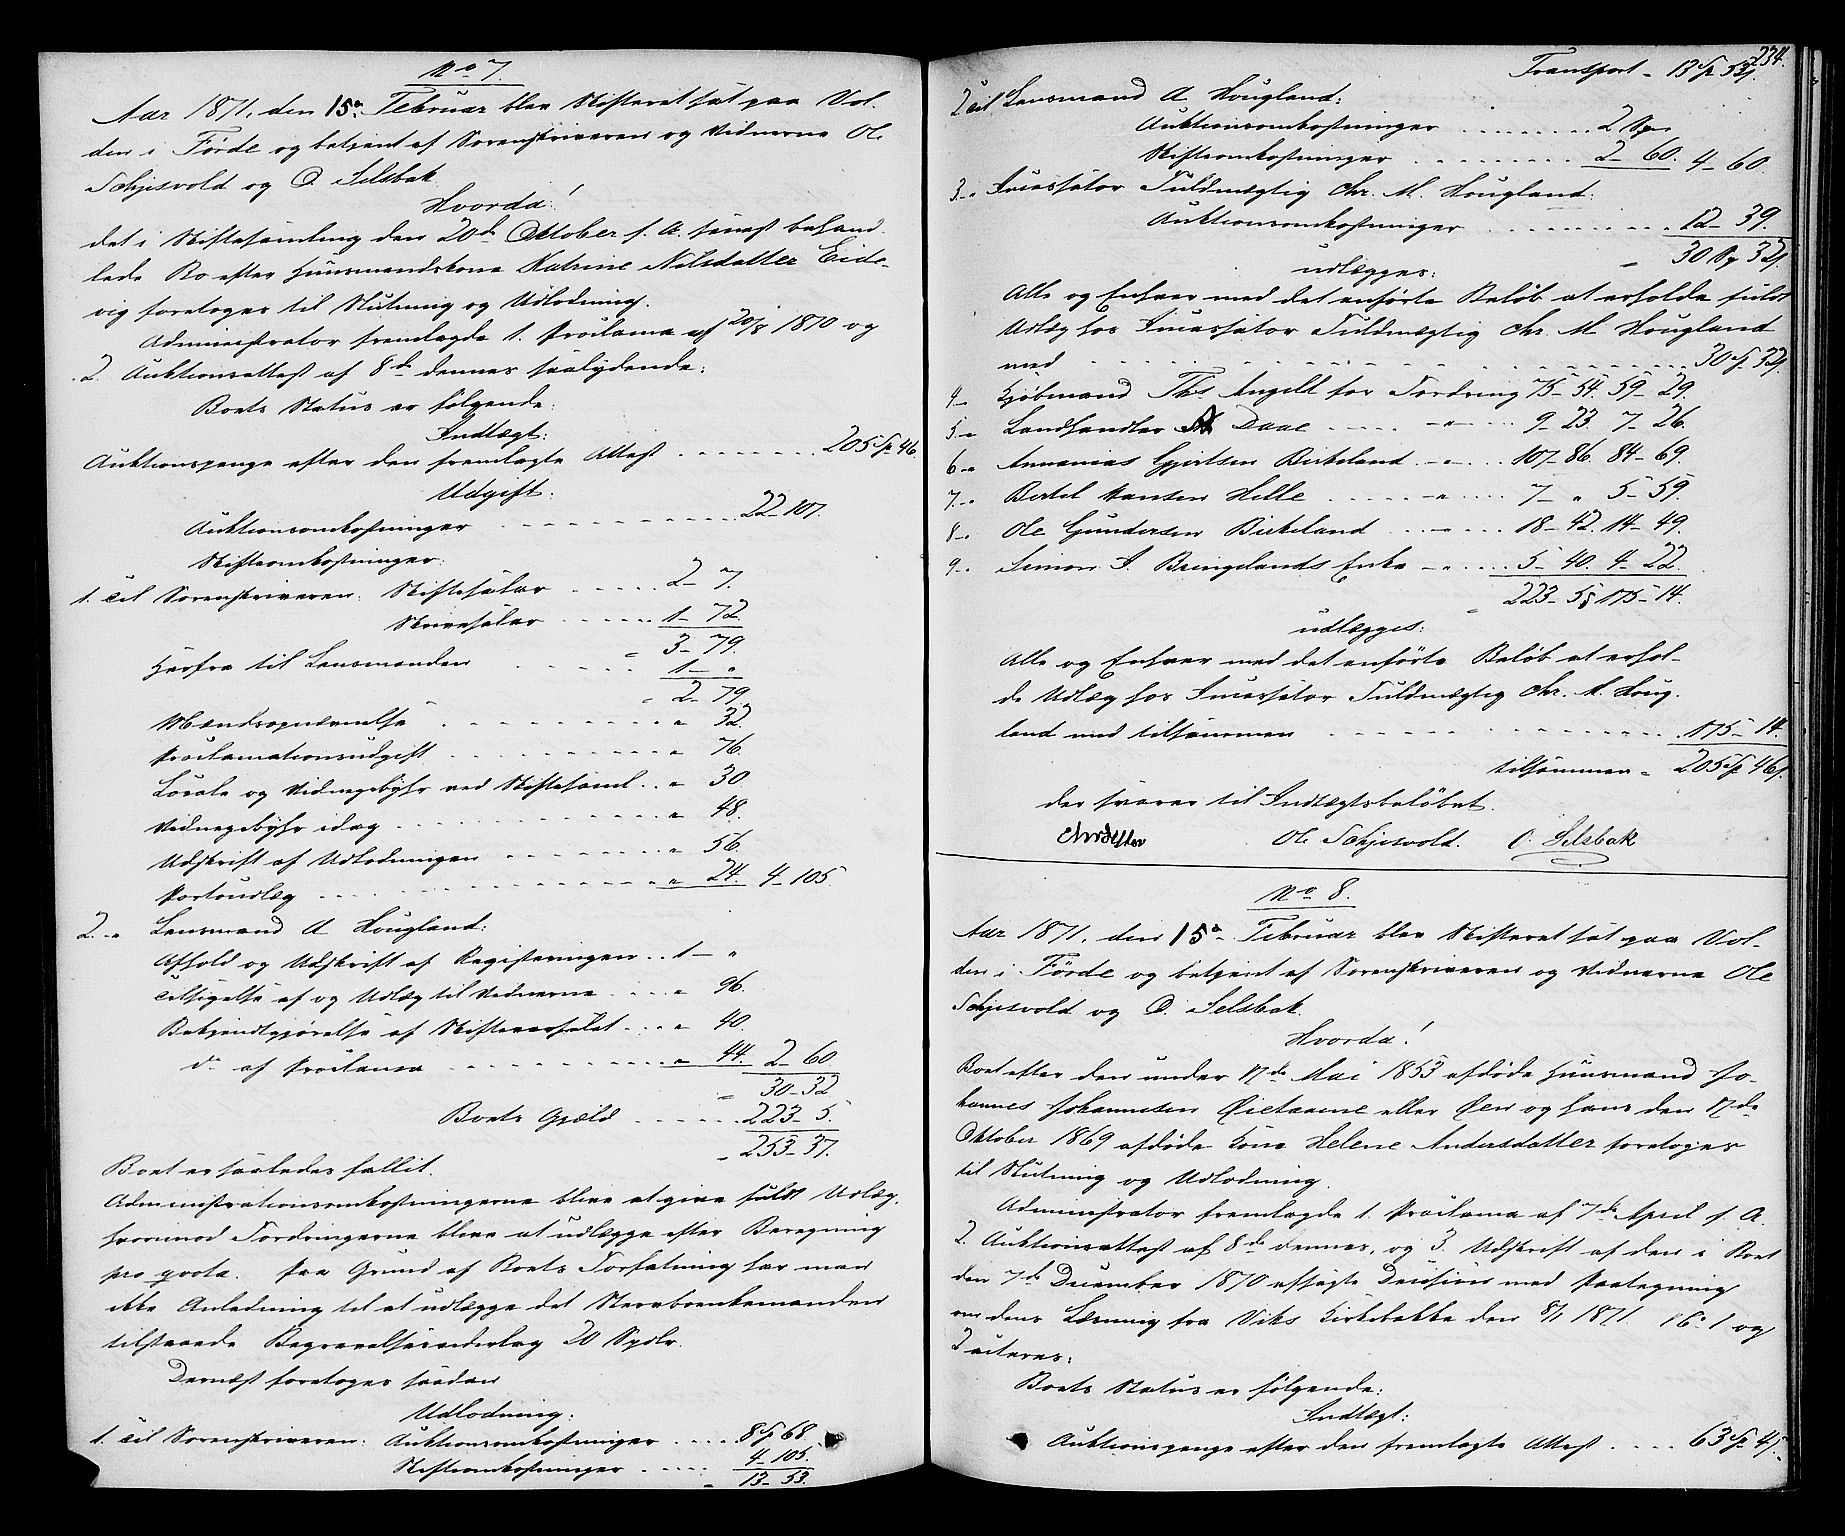 No 7.
Aar 1871, den 15de Februar blev Skifteret sat paa Vol-
den i Førde og betjent af Sorenskriveren og Vidnerne Ole
Schjesvold og O. Selsbak
Hvorda!
det i Skiftesamling den 20de Oktober f. A. senest behand-
lede Bo efter Huusmandskone Katrine Nilsdatter Eide-
vig foretoges til Slutning og Udlodning.
Administrator fremlagde 1. Proclama af 20/8 1870 og
2. Auktionsattest af 8de dennes saalydende:
Boets Status er følgende:
Indtægt:
Auktionspenge efter den fremlagte Attest . . . . . . . 205 Sp 46
Udgift:
Auktionsomkostninger . . . . . . . . . . . 22 - 107.
Skifteomkostninger:
1. Til Sorenskriveren: Skiftesalær . . . . . 2 - 7.
Skrivesalær . . . . . 1 - 72
= 3 - 79.
Herfra til Lensmanden . . . . . . 1 - "
= 2 - 79
Mændsopnævnelse . . . . . . . . . . " 32
Proclamationsudgift . . . . . . . . . " 76.
Locale og Vidnegebyhr ved Skiftesaml. . . " 30
Vidnegebyhr idag . . . . . . . . . . . " 48.
Udskrift af Udlodningen . . . . . . . . " 56.
Portoudlæg . . . . . . . . . . . . . " 24. 4 - 105.
2. " Lensmand A Hougland:
Afhold og Udskrift af Registeringen . . 1 - "
Tilsigelse af og Udlæg til Vidnerne . . . . " 96.
Bekjendtgjørelse af Skiftevarselet . . . " 40.
do af Proclama . . . . . . . . . . " 44. 2 - 60
= 30 - 32
Boets Gjæld . . . . . . 223 - 5.
= 253 - 37.
Boet er saaledes fallit.
Administrationsomkostningerne blive at give fuldt Udlæg,
hvorimod Fordringerne blive at udlægge efter Beregning
pro qvota. Paa Grund af Boets Forfatning har man
ikke Anledning til at udlægge det Stervboenkemanden
tilstaaede Begravelsesvederlag 20 Spdlr.
Dernæst foretoges saadan
Udlodning:
1. Til Sorenskriveren: Auktionsomkostninger . . . . 8 Sp 68.
Skifteomkostninger . . . . . 4 - 105.
= 13 - 53.
234.
Transport - 13 Sp 53 s.
2 til Lensmand A Hougland:
Auktionsomkostninger . . . . . . . . . 2 Sp "
Skifteomkostninger . . . . . . . . . . 2 - 60. 4 - 60.
3. " Incassator Fuldmægtig Chr. M. Hougland:
Auktionsomkostninger . . . . . . . . . . . 12 - 39.
= 30 Sp 32 s.
udlægges:
Alle og Enhver med det anførte Beløb at erholde fuldt
Udlæg hos Incassator Fuldmægtig Chr. M Hougland
med . . . . . . . . . . . . . . . . . . . . . 30 Sp 32 s.
4 " Kjøbmand Ths Angell for Fordring 75 - 54. 59 - 29.
5. " Landhandler Daae . . . . . - " - . . . 9 - 23. 7 - 26.
6 " Annanias Gjertsen Birkeland . - " - . . . 107 - 86. 84 - 69.
7. " Bertel Hansen Helle . . . . . - " - . . . 7 - " 5 - 59.
8 " Ole Gundersen Birkeland . . . - " - . . . 18 - 42. 14 - 49.
9 " Simon S. Bringelands Enke - " - . . . . 5 - 40. 4 - 22.
= 223 - 5 s 175 - 14.
udlægges:
Alle og Enhver med det anførte Beløb at erhol-
de Udlæg hos Incassator Fuldmægtig Chr. M. Houg-
land med tilsammen . . . . . . . . . . . . . . . . 175 - 14.
tilsammen = 205 Sp 46 s.
der svarer til Indtægtsbeløbet.
Ole Schjesvold. O. Selsbak
No 8.
Aar 1871, den 15de Februar blev Skifteret sat paa Vol-
den i Førde og betjent af Sorenskriveren og Vidnerne Ole
Schjesvold og O. Selsbak.
Hvorda!
Boet efter den under 17de Mai 1853 afdøde Huusmand Jo-
hannes Johannesen Øietaaene eller Øen og hans den 17de
Oktober 1869 afdøde Kone Helene Andersdatter foretoges
til Slutning og Udlodning.
Administrator fremlagde 1. Proclama af 7de April f. A.
2. Auktionsattest af 8de dennes, og 3. Udskrift af den i Boet
den 7de December 1870 afsagte Decision med Paategning
om dens Læsning fra Viks Kirkebakke den 8/1 1871. No 1 og
2 acteres:
Boets Status er følgende:
Indtægt:
Auktionspenge efter den fremlagte Attest . . . . 63 Sp 4 s.